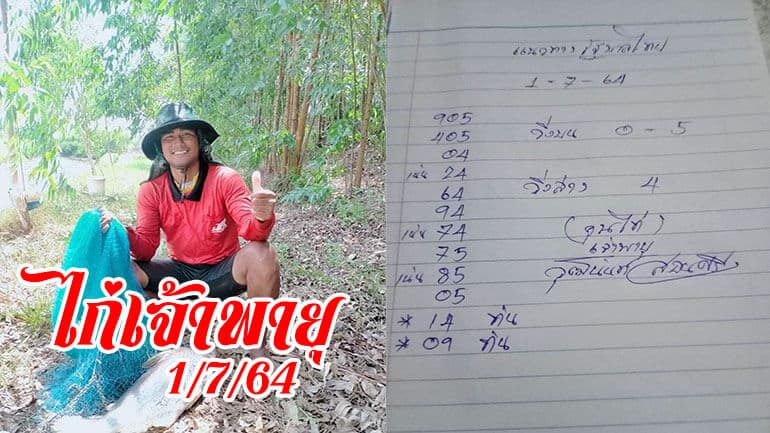 ไก่เจ้าพายุ
1/7/64
แนวทาง รัฐบาลไทย
1-7-64
905
405 วิ่งบน 0-5
04
เน้น 24
64 วิ่งล่าง 4
94
เน้น 74 (ขุนไก่)
75 เจ้าพายุ
เน้น 85
05
* 14 ทุ่น
* 09 ทุ่น